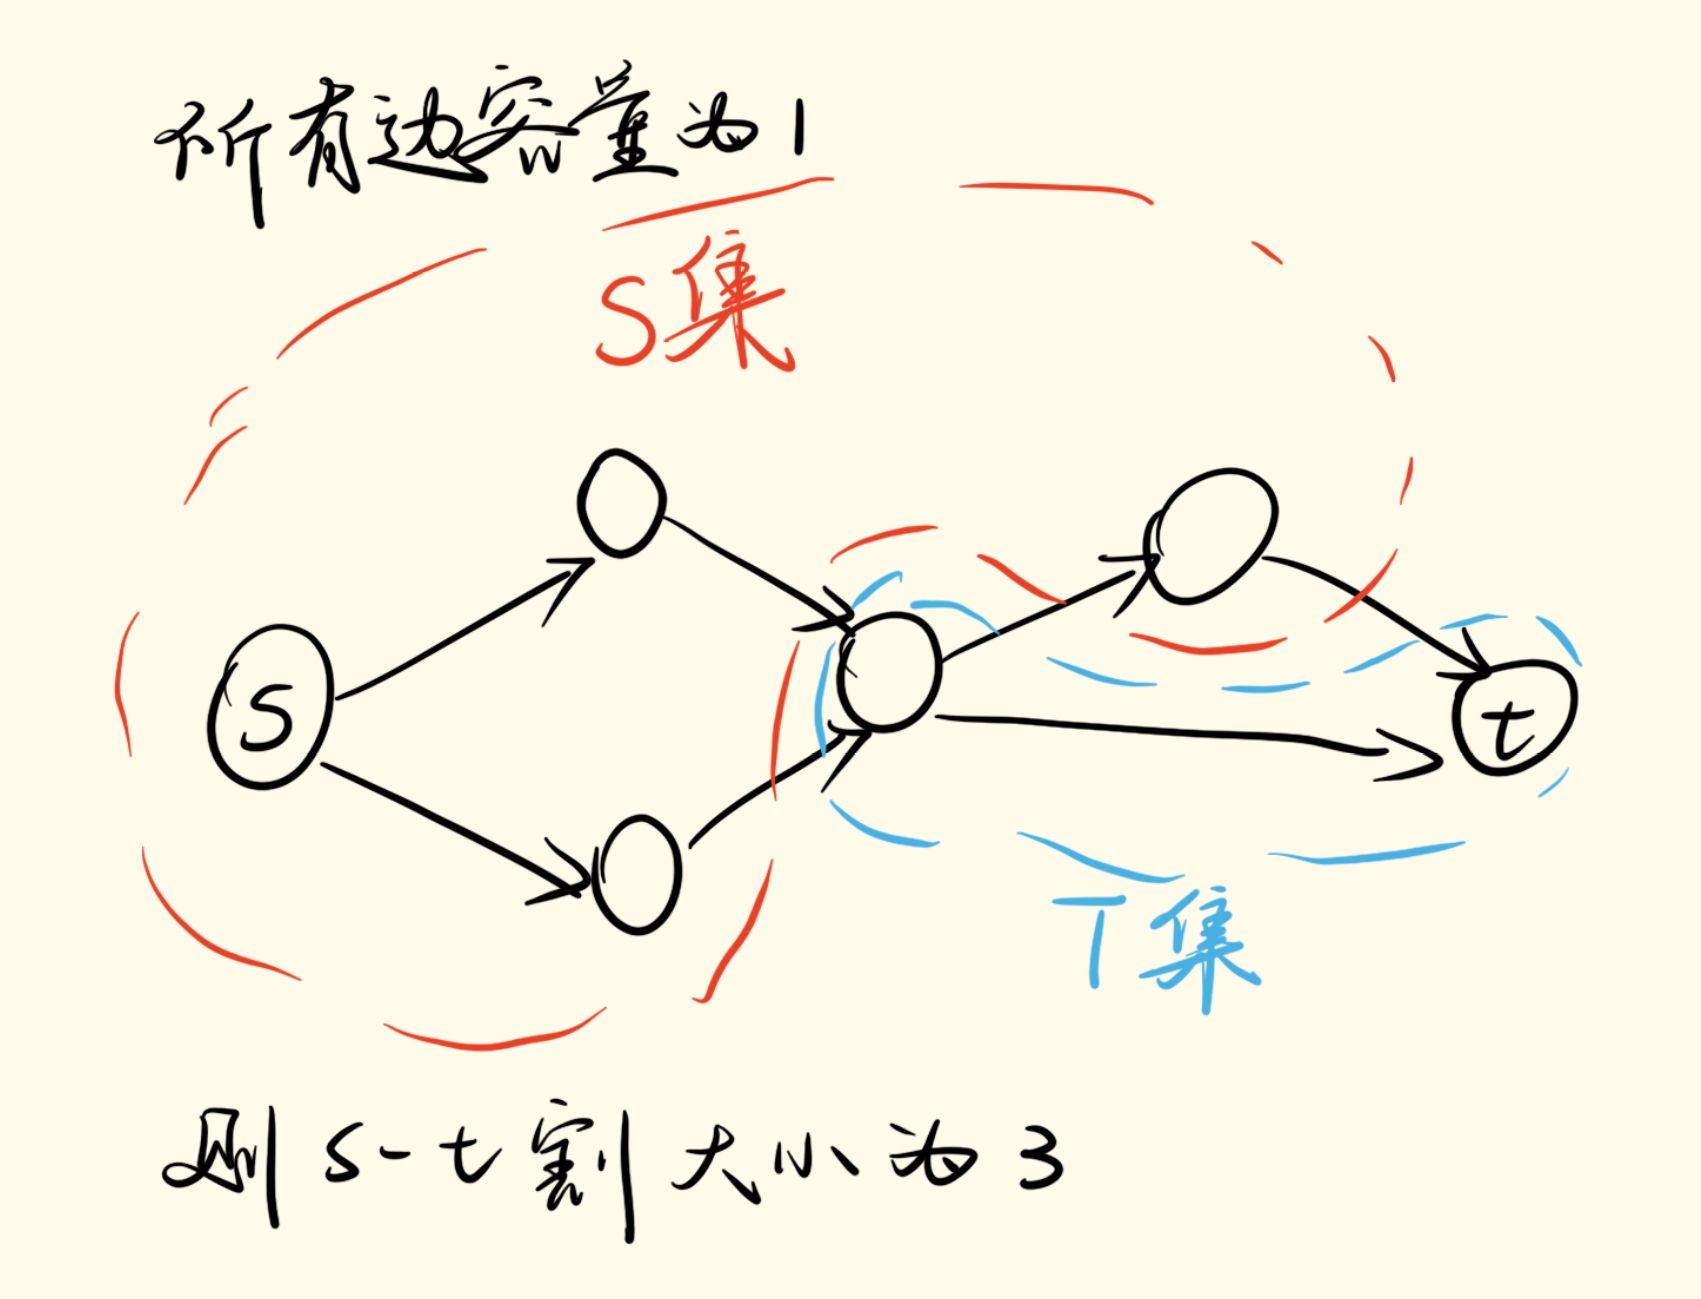 所有边容量为1
S集
S
t
T集
则 s-t割大小为3